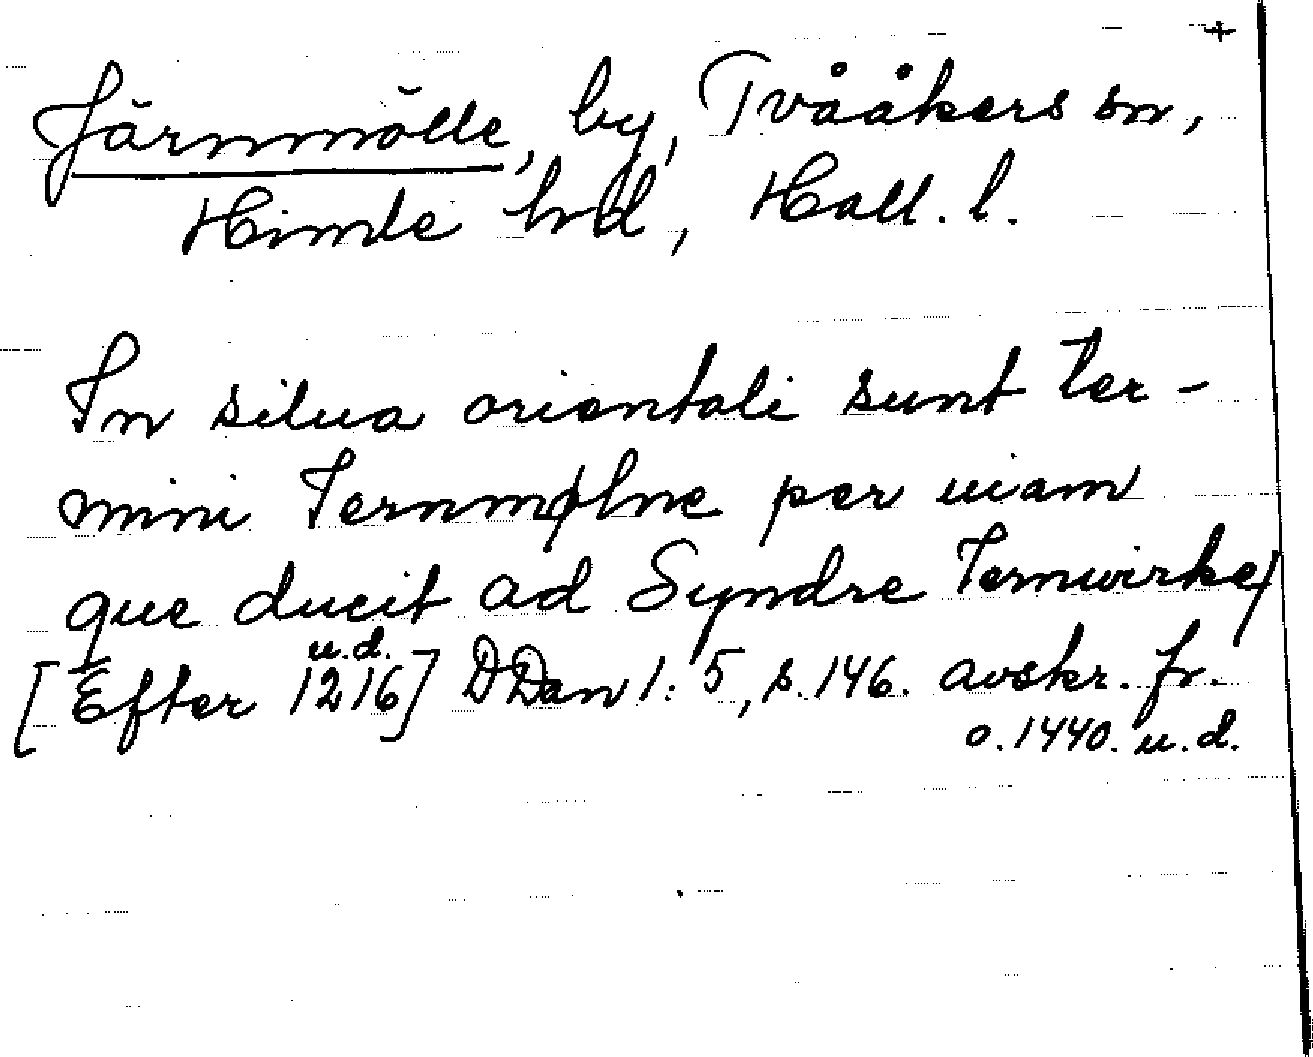 +
Järnmölle, by, Tvååkers sn,
Himle hd, Hall. l.
In silua orientali sunt ter-
mini Iernmølne per uiam
que ducit ad Syndre Iernwirke/
u.d.
[Efter 1216] DDan 1:5, s.146. avskr. fr.
o.1440. u.d.